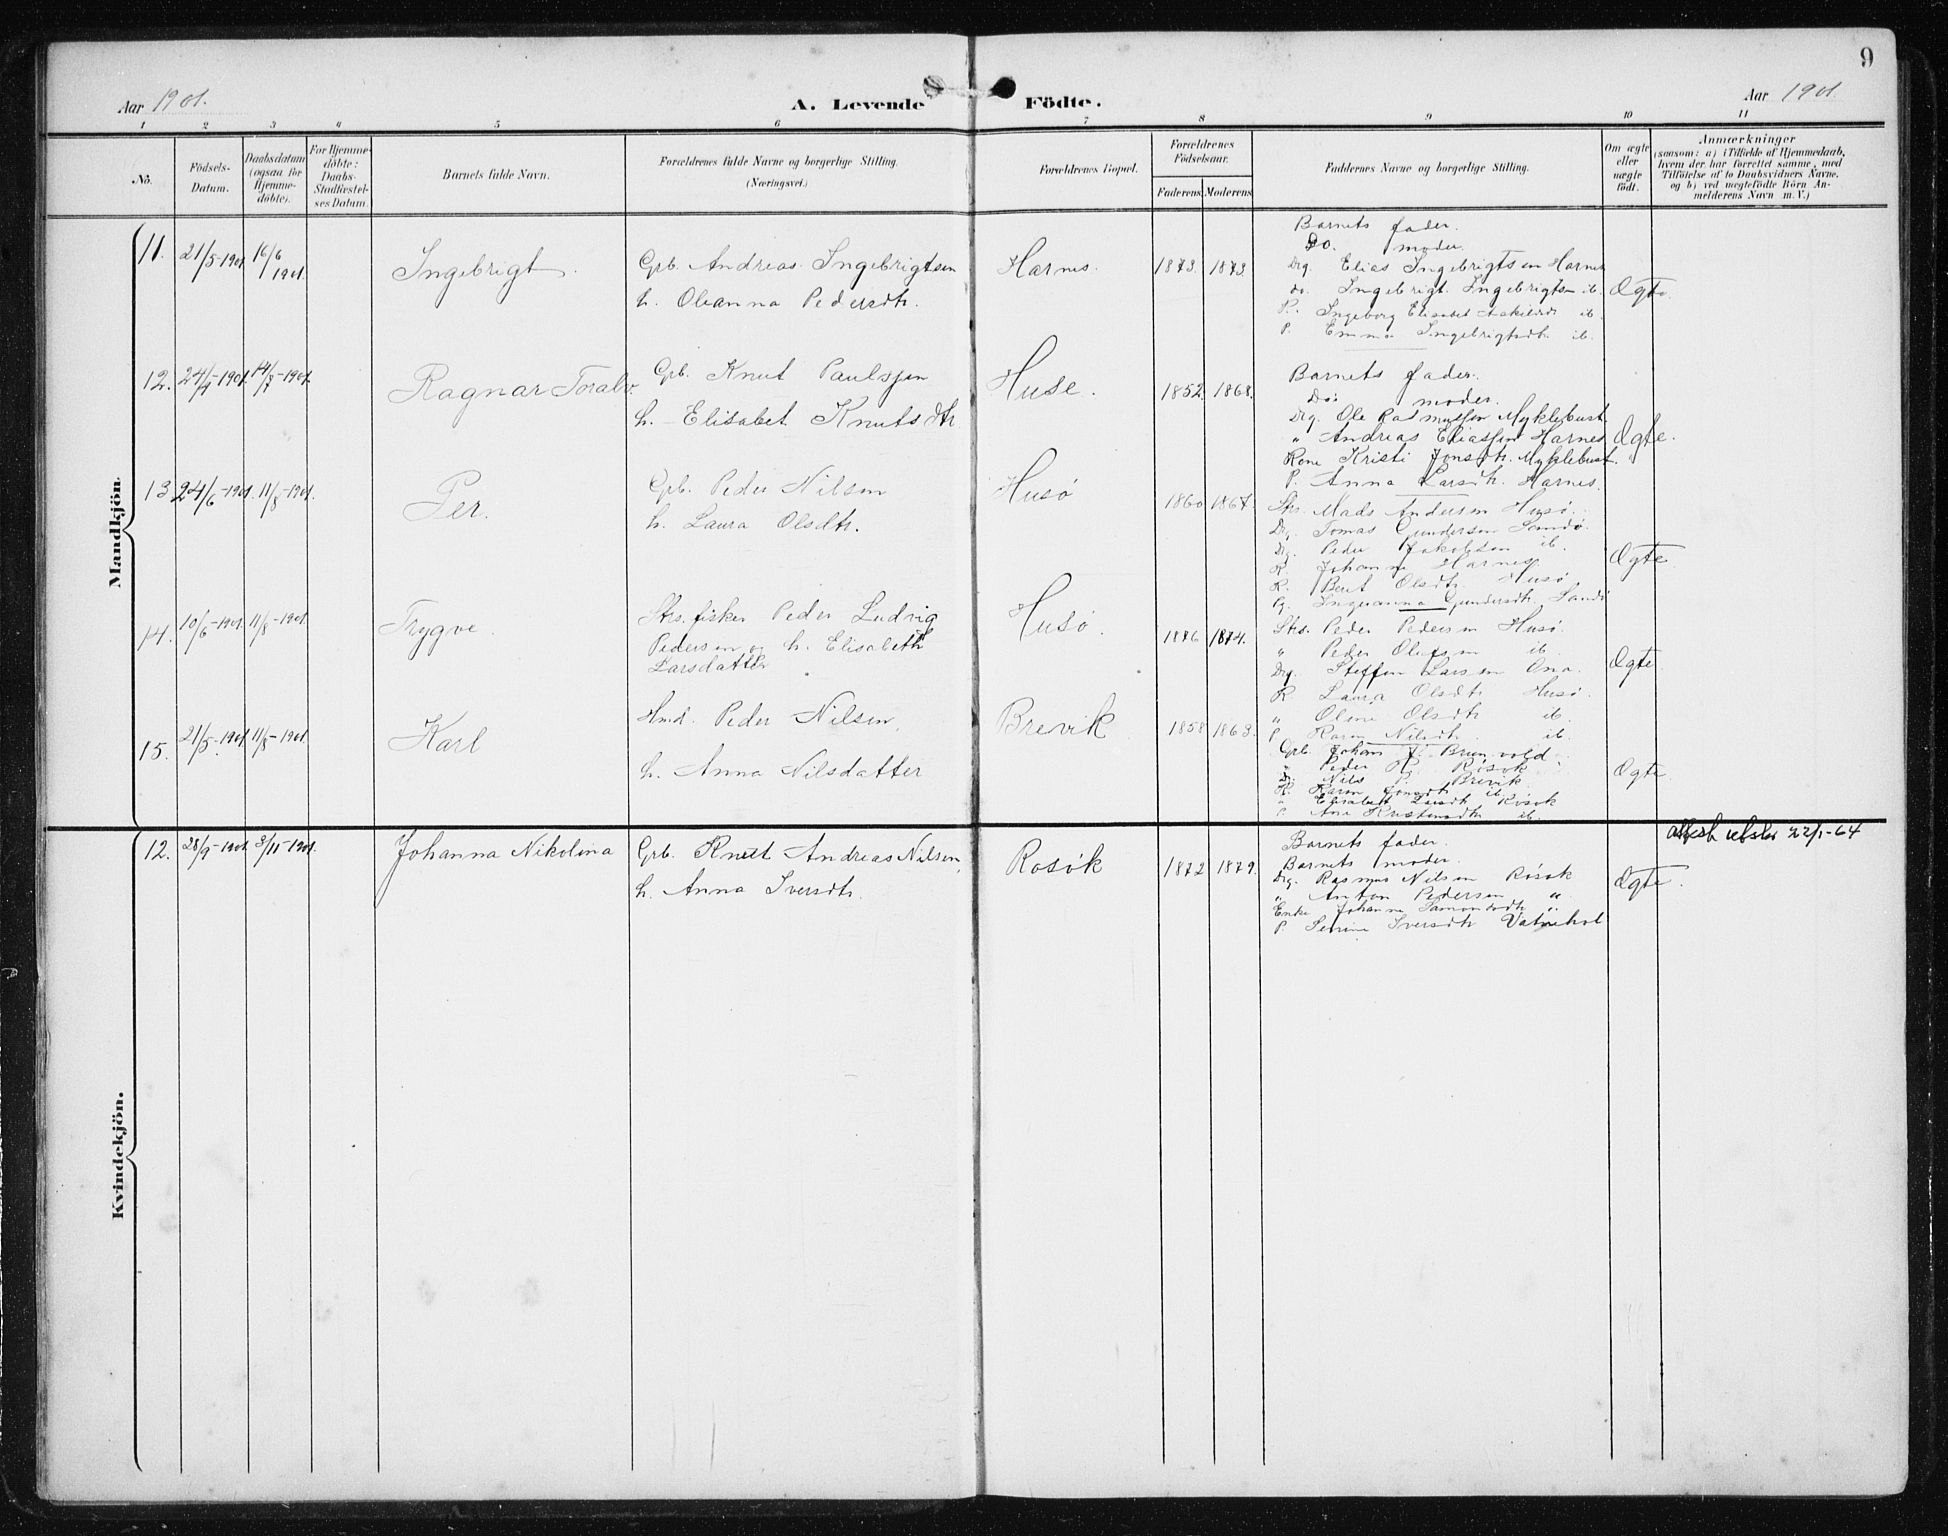 9
Aar 1901.
A. Levende Födte.
Aar 1901.
1 2 3 4 5 6 7 8 9 10 11
No.
Födsels-Datum.
Daabsdatum (ogsaa for Hjemme-döbte).
For Hjemme-döbte: Daabs-Stadfæstel-ses Datum.
Barnets fulde Navn.
Forældrenes fulde Navne og borgerlige Stilling.
(Næringsvei.)
Forældrenes Bopæl.
Forældrenes Födselsaar.
Faderens. Moderens.
Faddernes Navne og borgerlige Stilling.
Om ægte eller uægte födt.
Anmærkninger
(saasom: a) i Tilfælde af Hjemmedaab,
hvem der har forrettet samme, med
Tilföielse af to Daabsvidners Navne,
og b) ved uegtefödte Börn An-
melderens Navn m. V.)
Mandkjön.
11. 21/5-1901. 16/6 1901. Ingebrigt.
Grb. Andreas Ingebrigtsen
h. Oleanna Pedersdtr.
Harnes. 1873. 1873.
Barnets fader.
Do. moder.
Drg. Elias Ingebrigtsen Harnes
do. Ingebrigt Ingebrigtsen ib.
P. Ingeborg Elisabet ib.
P. Emma Ingebrigtsdtr ib.
Ægte.
12. 24/4-1901. 14/7-1901. Ragnar Toralv.
Grb. Knut Paulssen
h. Elisabet Knutsdtr
Huse. 1852. 1868.
Barnets fader.
Do. moder.
Drg. Ole Rasmussen Myklebust.
" Andreas Eliassen Harnes
Kone Kristi Jonsdtr. Myklebust.
P. Anna Larsdtr. Harnes.
Ægte.
13 24/6-1901. 11/8-1901. Per.
Grb. Peder Nilsen
h. Laura Olsdtr.
Husø 1860 1867.
Strs. Mads Andersen Husø.
Drg. Tomas Gundersen Sandø.
Drg. Peder Jakobsen ib.
K. Johanne Harnes
K. Berit Olsdtr. Husø
P. Gundersdtr. Sandø
Ægte
14. 10/6-1901. 11/8-1901. Trygve.
Strs. fisker Peder Ludvig
Pedersen og h. Elisabeth
Larsdatter
Husø. 1876 1874.
Strs. Peder Pedersen Husø.
" Peder Olufsen ib.
Drg. Steffen Larsen Ona.
K. Laura Olsdtr Husø.
" Oline Olsdtr ib.
P. Karen Nilsdtr. ib.
Ægte
15. 21/5-1901. 11/8-1901. Karl
Hmd. Peder Nilsen
h. Anna Nilsdatter
Brevik 1858 1863.
Grb. Johan J. Brunvold.
" Peder K. Rösok
Drg. Nils P. Brevik
K. Karen Jonsdtr ib.
" Elisabet Larsdtr Rösok
P. Ane Kristensdtr ib.
Ægte
Kvindekjön.
12. 28/9-1901. 3/11-1901. Johanna Nikolina
Grb. Knut Andreas Nilsen,
h. Anna Iversdtr.
Rosøk 1872 1879.
Barnets fader.
Barnets moder.
Drg. Rasmus Nilsen Rösok
" Anton Pedersen "
Enke Johanne Samondsdtr "
P. Serine Iversdtr Vatnehol
Ægte.
attest utstev 22/1-64